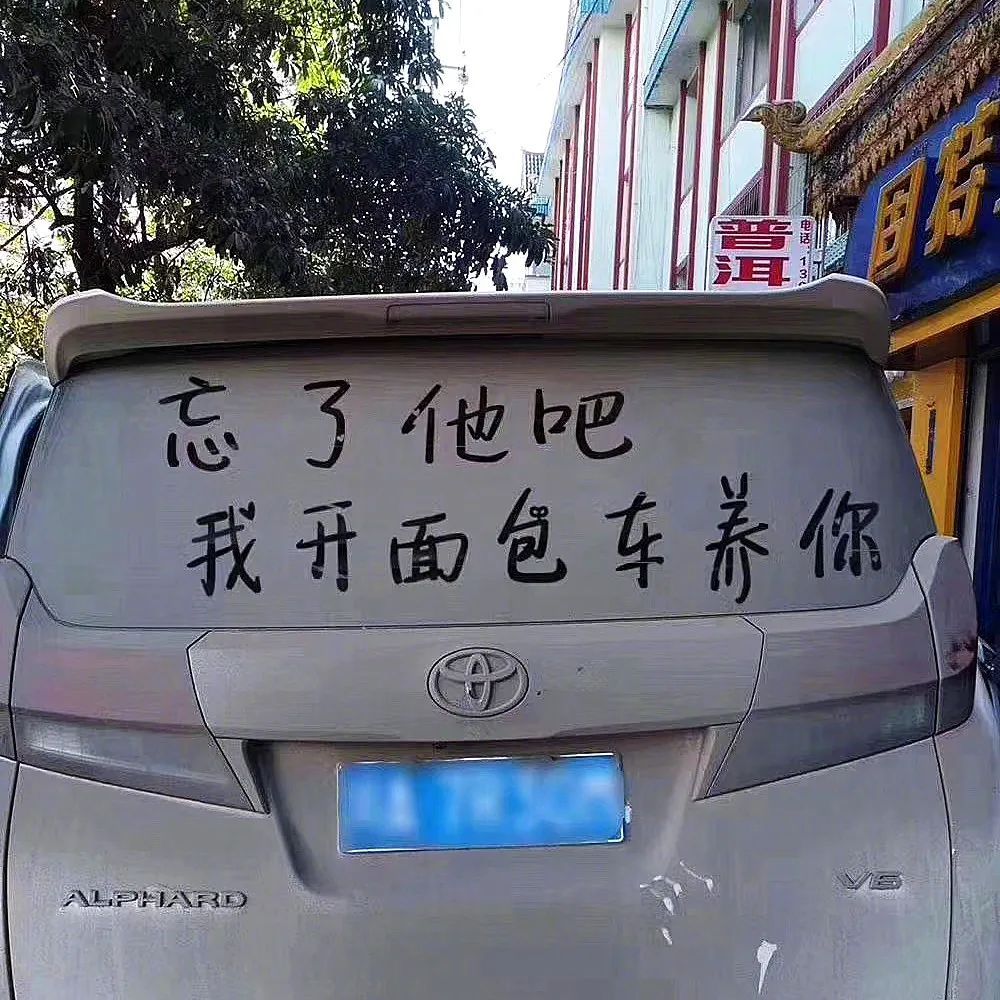 普洱
电话:13
固特
忘了他吧
我开面包车养你
ALPHARD
V6